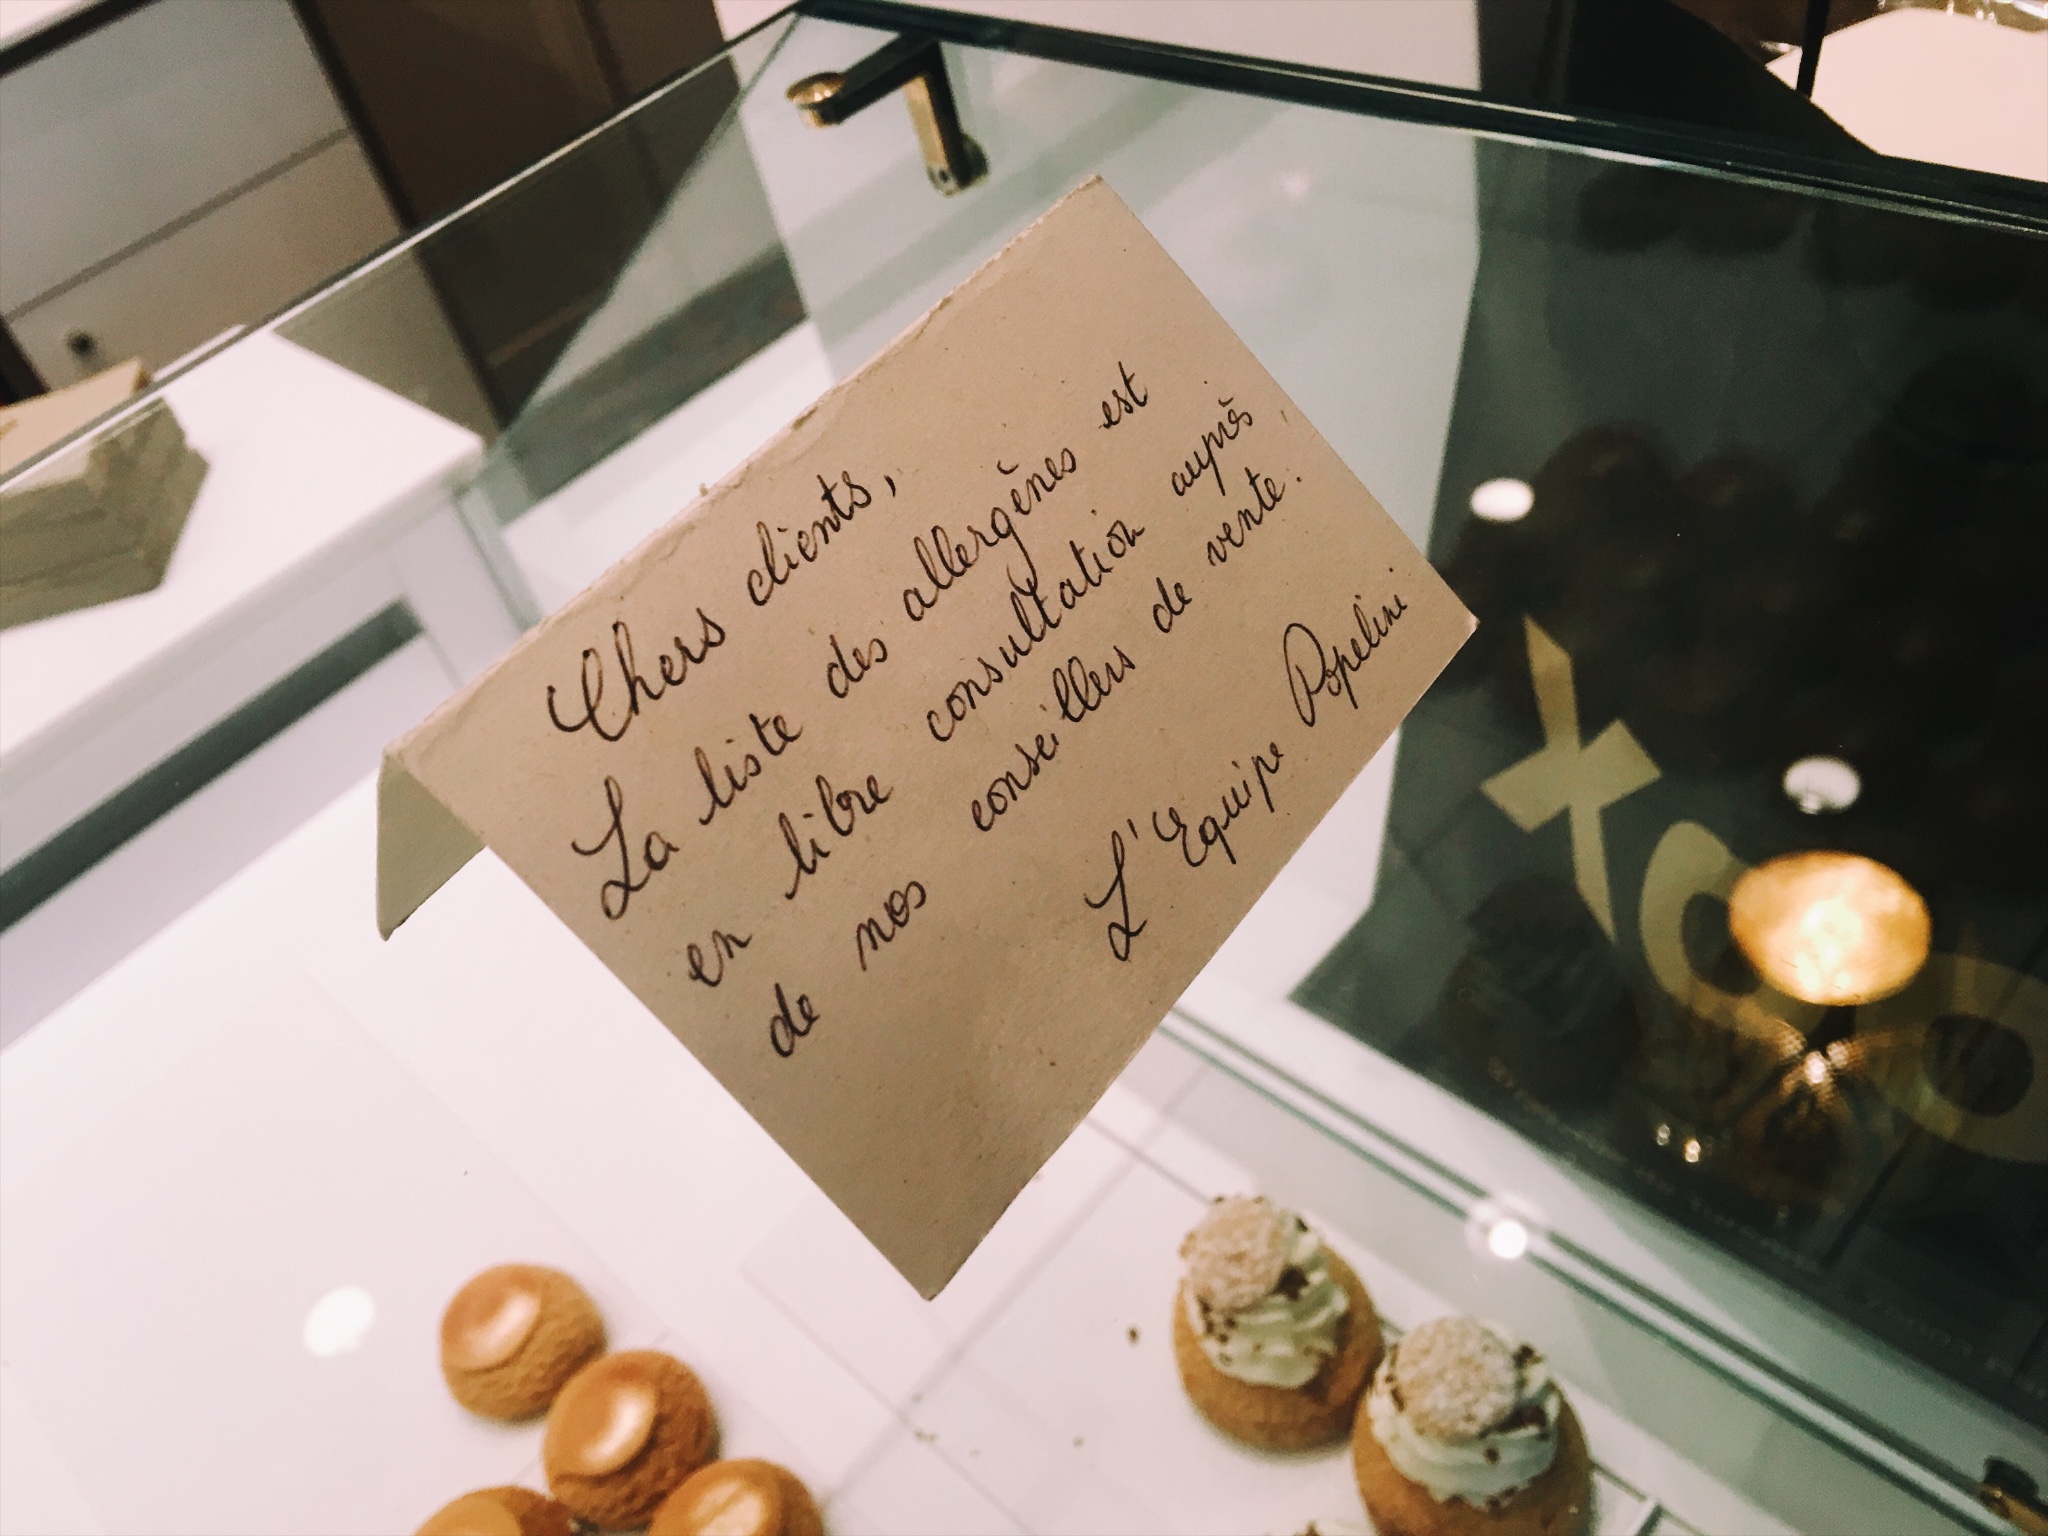 Chers clients,
La liste des allergènes est
en libre consultation auprès
de nos conseillers de vente.
L'Equipe Popelini